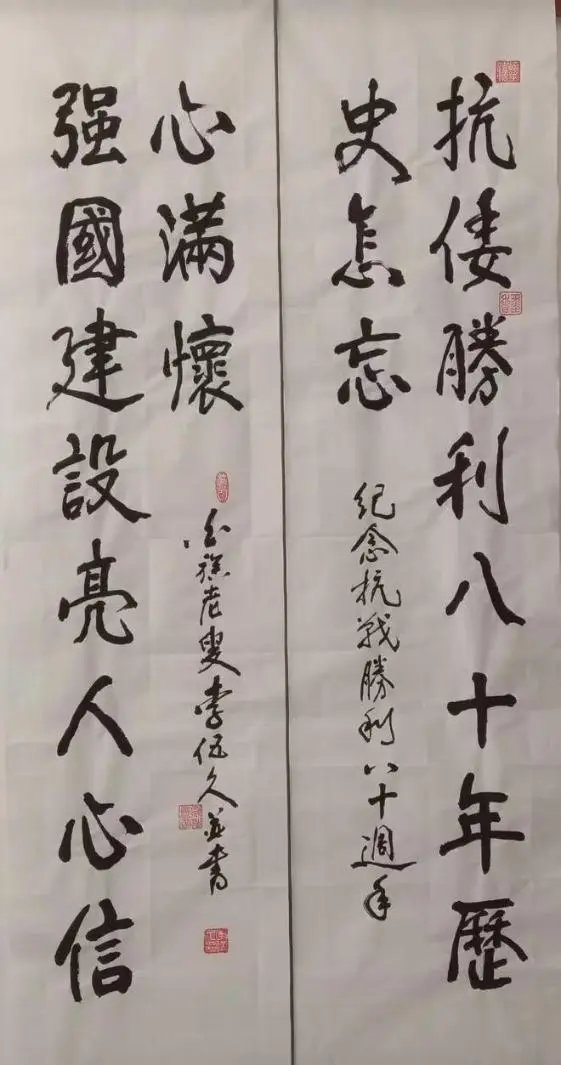 抗倭勝利八十年歷
史怎忘
紀念抗戰勝利八十週年
强國建設亮人心信
心滿懷
白族老叟李伍久並書